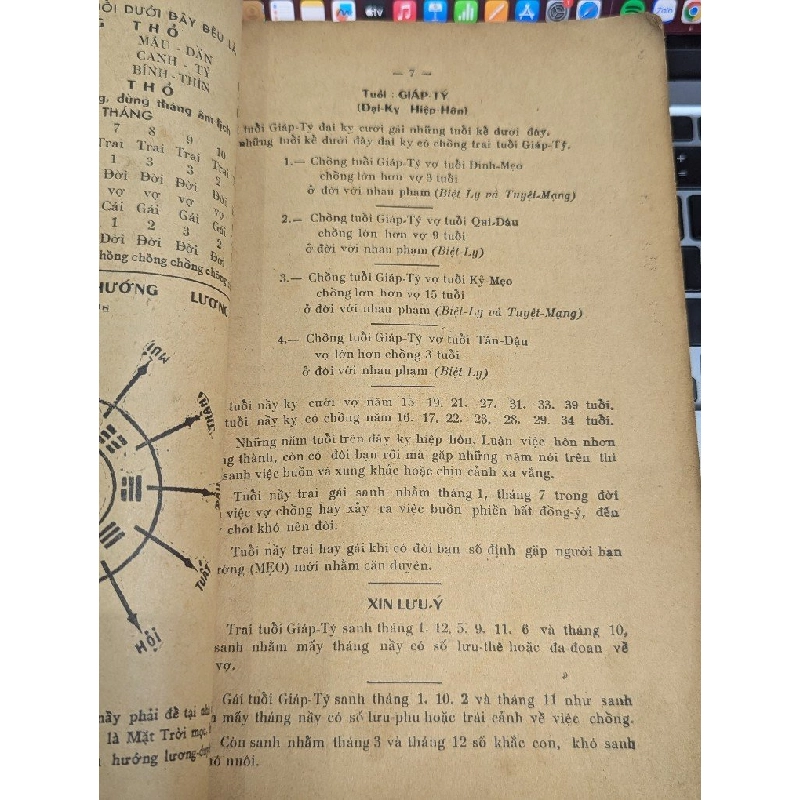 ỔI DƯỚI ĐÂY ĐỀU LÀ
THỔ
MẬU - DẦN
CANH - TÝ
BÍNH - THÌN
THỔ
dùng tháng âm lịch
THÁNG
7 8 9 10
Trai Trai Trai Trai
1 3 3 2
Đời Đời Đời Đời
vợ vợ vợ vợ
Gái Gái Gái Gái
1 2 3 2
Đời Đời Đời Đời
chồng chồng chồng chồng
HƯỚNG LƯƠNG
MÙI
THÂN
DẬU
TUẤT
HỢI
này phải để tại
là Mặt Trời mọc
hướng lương
— 7 —
Tuổi : GIÁP-TÝ
(Đại-Kỵ Hiệp-Hôn)
tuổi Giáp-Tý đai kỵ cưới gái những tuổi kể dưới đây.
những tuổi kể dưới đây đai kỵ có chồng trai tuổi Giáp-Tý.
1.— Chồng tuổi Giáp-Tý vợ tuổi Đinh-Mẹo
chồng lớn hơn vợ 3 tuổi
ở đời với nhau phạm (Biệt Ly và Tuyệt-Mạng)
2.— Chồng tuổi Giáp-Tý vợ tuổi Quí-Dậu
chồng lớn hơn vợ 9 tuổi
ở đời với nhau phạm (Biệt Ly)
3.— Chồng tuổi Giáp-Tý vợ tuổi Kỷ-Mẹo
chồng lớn hơn vợ 15 tuổi
ở đời với nhau phạm (Biệt-Ly và Tuyệt-Mạng)
4.— Chồng tuổi Giáp-Tý vợ tuổi Tân-Dậu
vợ lớn hơn chồng 3 tuổi
ở đời với nhau phạm (Biệt Ly)
tuổi nầy kỵ cưới vợ năm 15 19. 21. 27. 31. 33. 39 tuổi.
tuổi nầy kỵ có chồng năm 16. 17. 22. 23. 28. 29. 34 tuổi.
Những năm tuổi trên đây kỵ hiệp hôn. Luận việc hôn nhơn
thành, còn có đôi bạn rồi mà gặp những năm nói trên thì
sanh việc buồn và xung khắc hoặc chịu cảnh xa vắng.
Tuổi nầy trai gái sanh nhằm tháng 1, tháng 7 trong đời
việc vợ chồng hay xảy ra việc buồn phiền bất đồng-ý, đến
chót khó nên đôi.
Tuổi nầy trai hay gái khi có đôi bạn số định gặp người bạn
(MẸO) mới nhằm căn duyên.
XIN LƯU-Ý
Trai tuổi Giáp-Tý sanh tháng 1. 12, 5. 9. 11. 6 và tháng 10,
sanh nhằm mấy tháng nầy có số lưu-thê hoặc đa-đoan về
vợ.
Gái tuổi Giáp-Tý sanh tháng 1. 10. 2 và tháng 11 như sanh
mấy tháng nầy có số lưu-phu hoặc trái cảnh về việc chồng.
Còn sanh nhằm tháng 3 và tháng 12 số khắc con, khó sanh
nuôi.